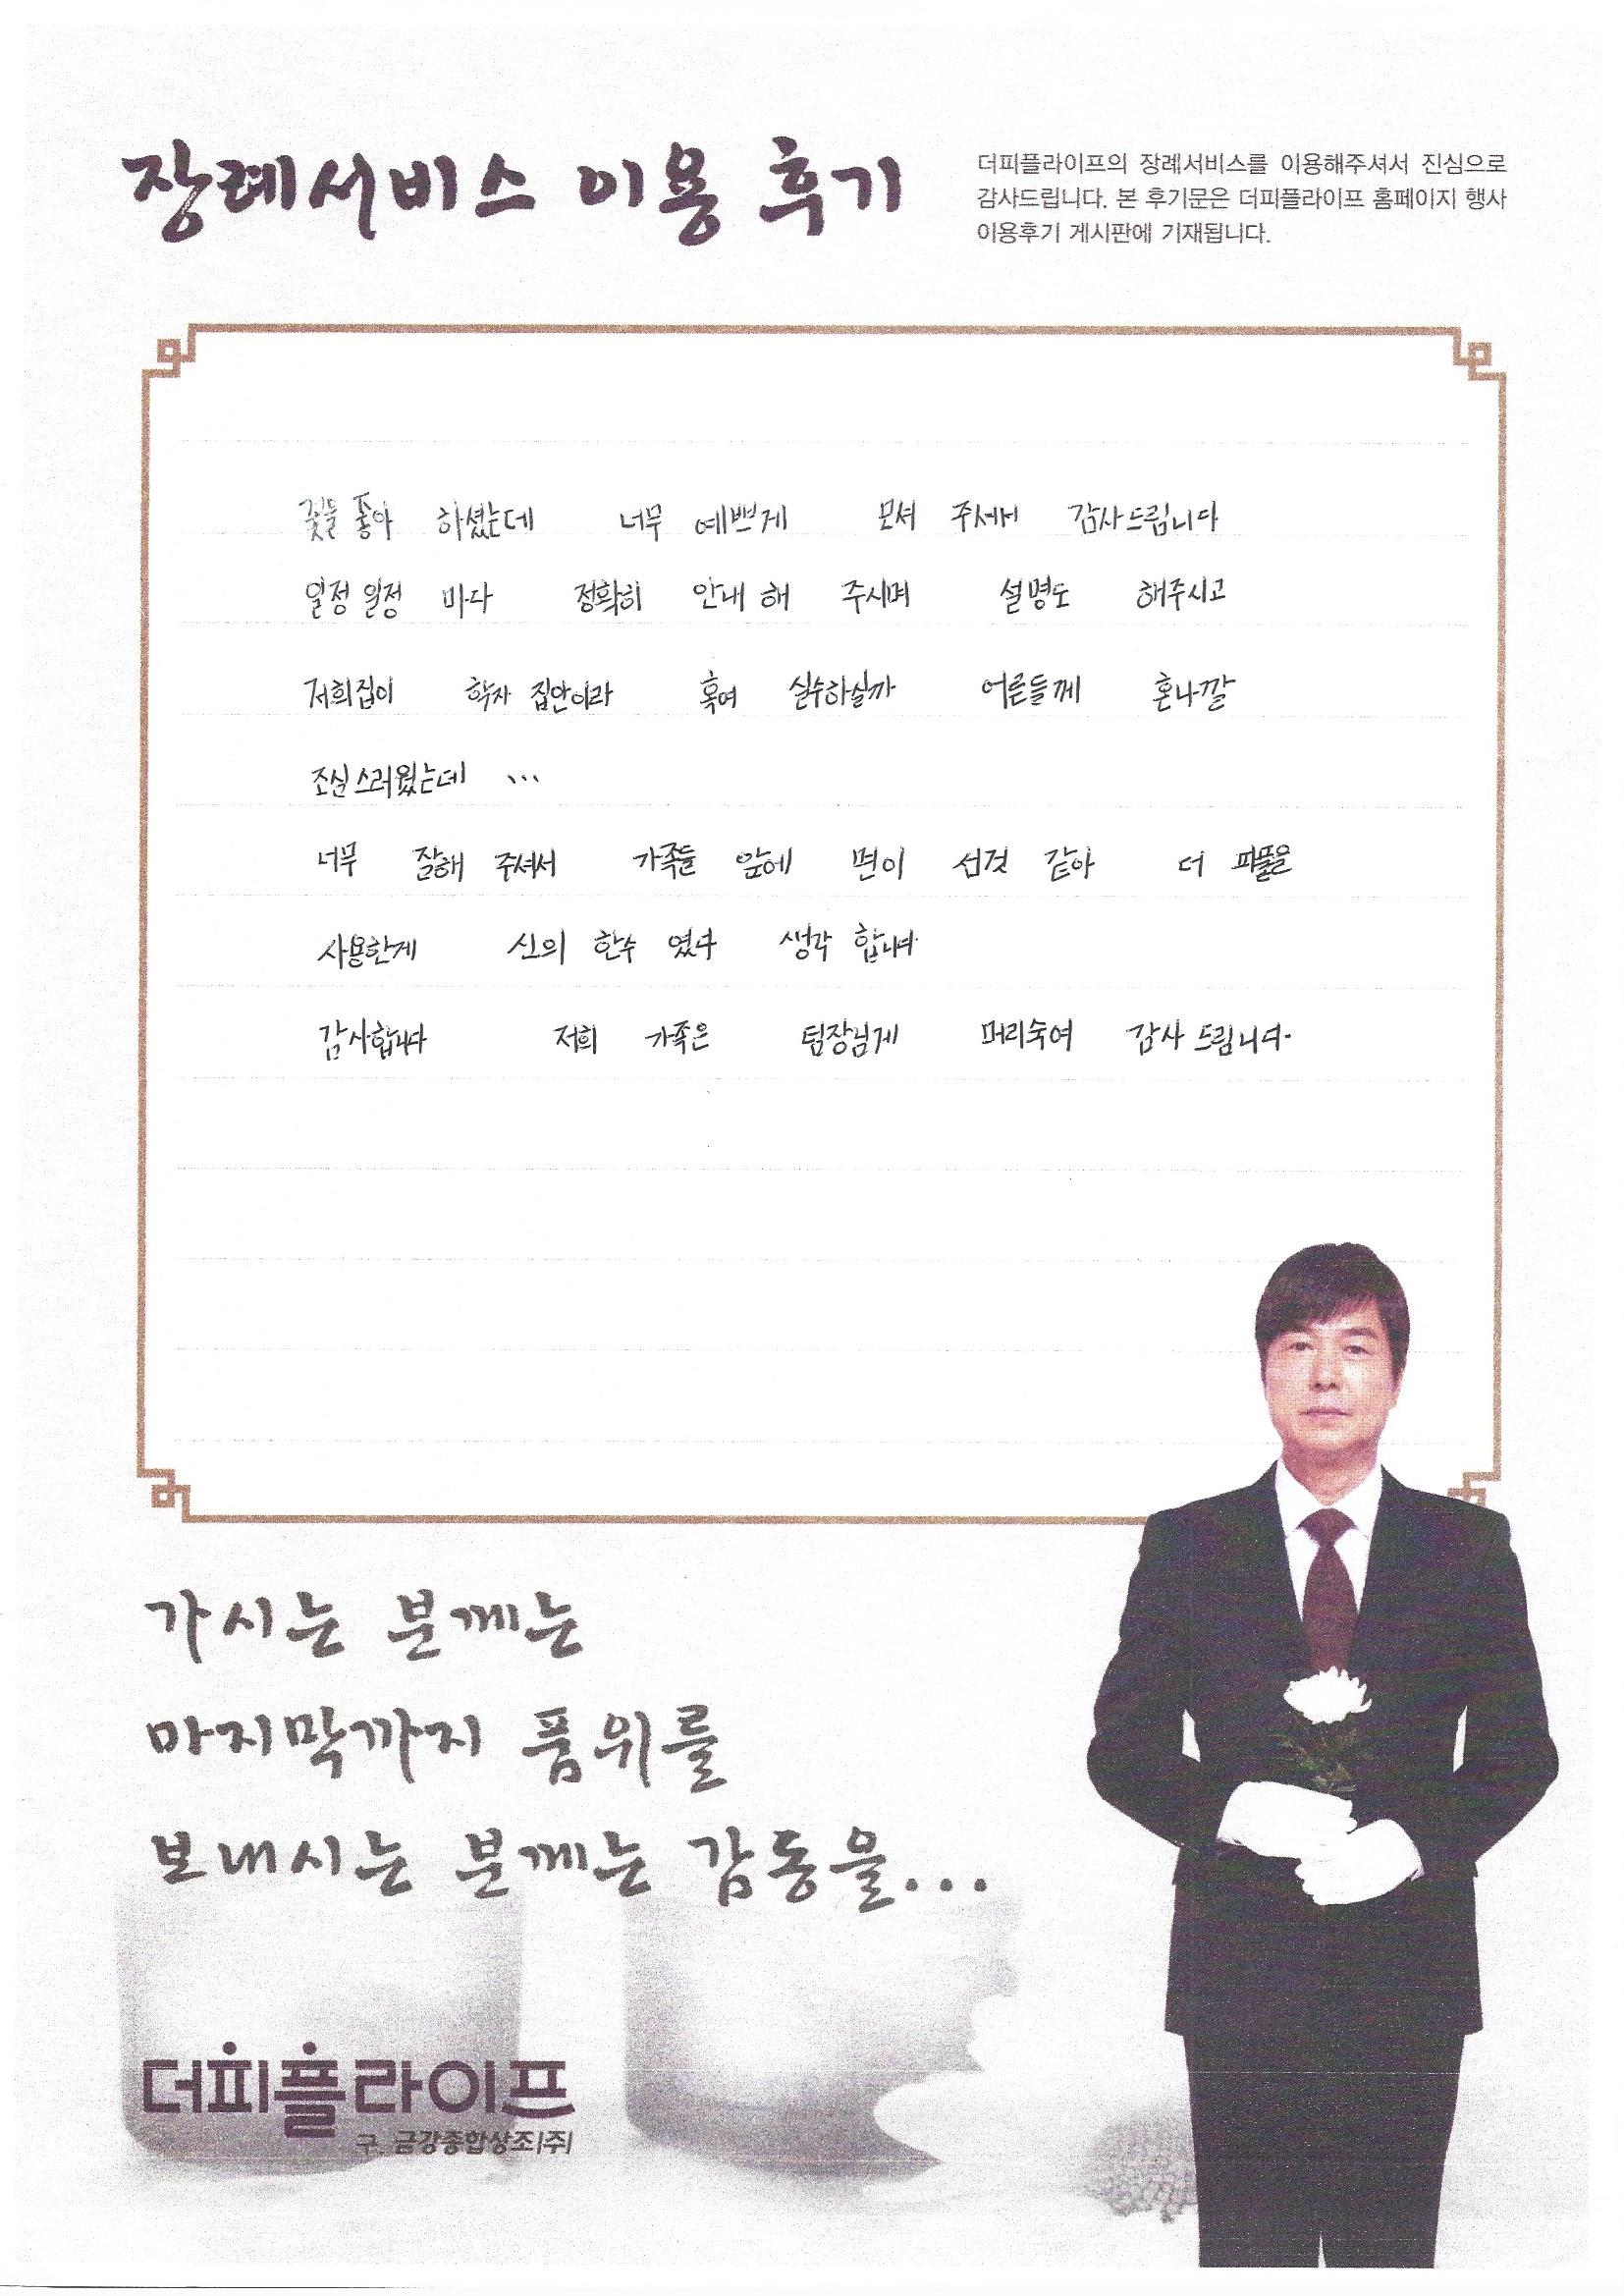 장례서비스 이용 후기
더피플라이프의 장례서비스를 이용해주셔서 진심으로
감사드립니다. 본 후기문은 더피플라이프 홈페이지 행사
이용후기 게시판에 기재됩니다.
꽃들 좋아 하셨는데 너무 예쁘게 모셔 주셔서 감사드립니다
일정 일정 마다 정확히 안내 해 주시며 설명도 해주시고
저희집이 학자 집안이라 혹여 실수하실까 어른들께 혼나깔
조심스러웠는데 ...
너무 잘해 주셔서 가족들 앞에 면이 선것 같아 더 피플을
사용한게 신의 한수 였다 생각 합니다
감사합니다 저희 가족은 팀장님게 머리숙여 감사 드립니다.
가시는 분께는
마지막까지 품위를
보내시는 분께는 감동을...
더피플라이프
구. 금강종합상조(주)